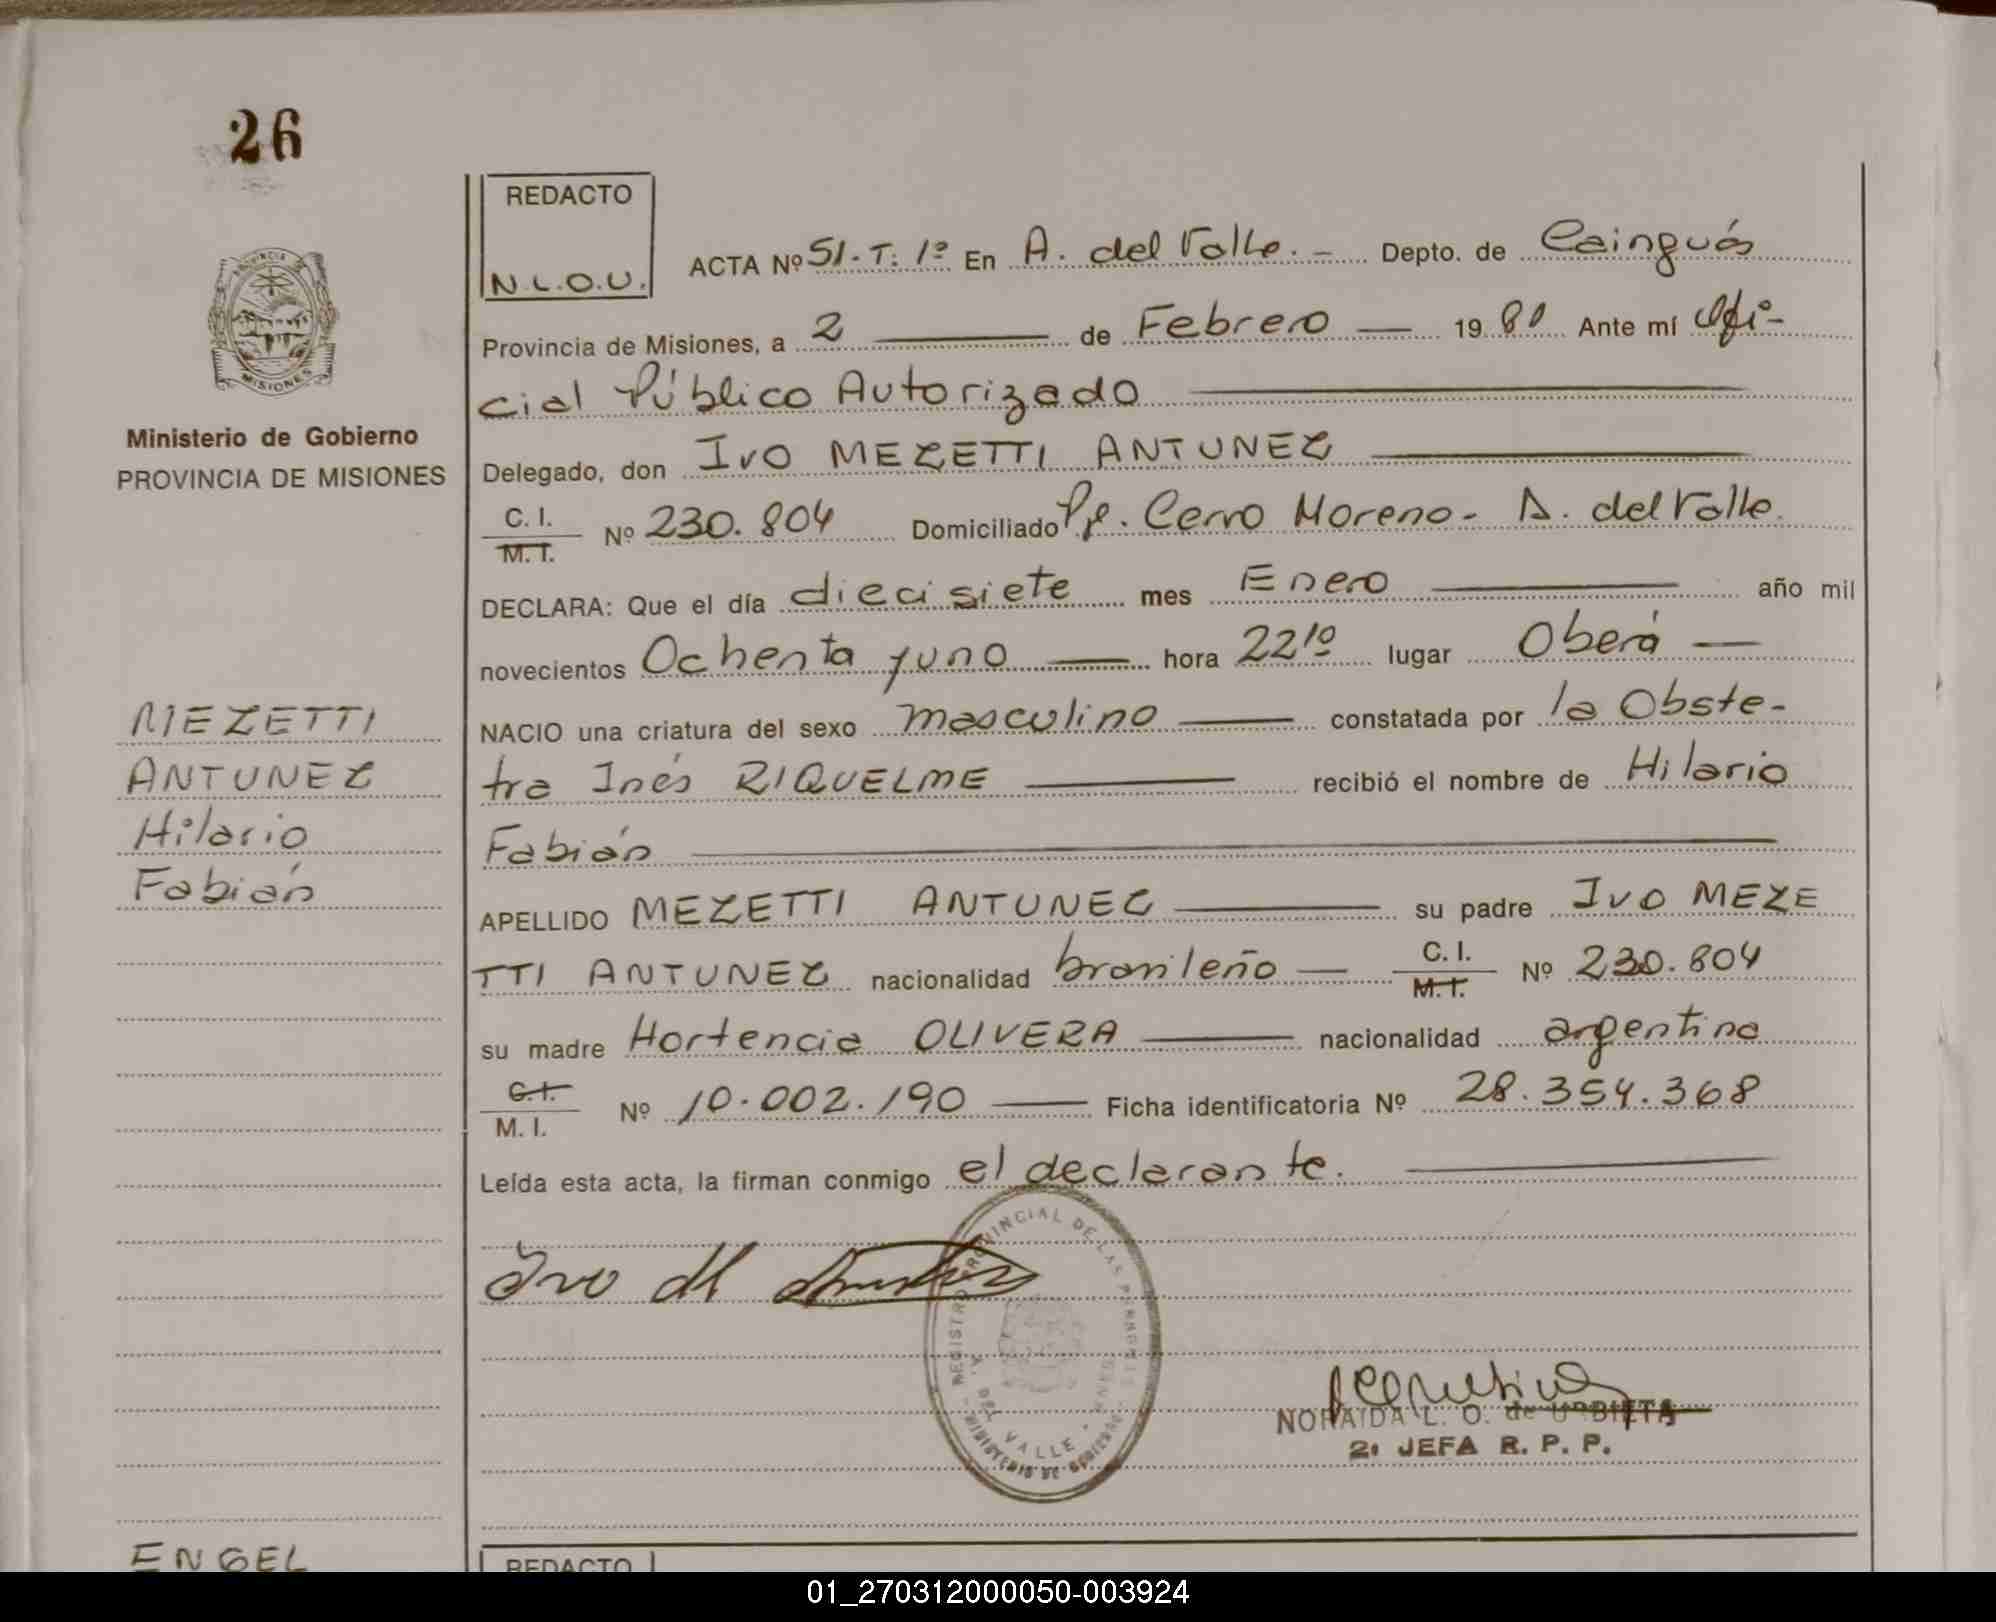 26
REDACTO
N.L.O.U.
ACTA Nº 51-T. 1º En A. del Valle. - Depto. de Cainguás
Provincia de Misiones, a 2 de Febrero 1981 Ante mí Ofi-
cial Público Autorizado
Delegado, don Ivo MEZETTI ANTUNEZ
C. I.
M. I. Nº 230.804 Domiciliado Pje. Cerro Moreno - A. del Valle.
DECLARA: Que el día diecisiete mes Enero año mil
novecientos Ochenta y uno hora 22¹⁰ lugar Oberá
NACIO una criatura del sexo masculino constatada por la Obste-
tra Inés RIQUELME recibió el nombre de Hilario
Fabián
APELLIDO MEZETTI ANTUNEZ su padre Ivo MEZE
TTI ANTUNEZ nacionalidad brasileño C. I.
M. I. Nº 230.804
su madre Hortencia OLIVERA nacionalidad argentina
C. I.
M. I. Nº 10.002.190 Ficha identificatoria Nº 28.354.368
Leída esta acta, la firman conmigo el declarante.
Ivo M Antunez
REGISTRO PROVINCIAL DE LAS PERSONAS
A. DEL VALLE
MINISTERIO DE GOBIERNO
NORAIDA L. O. de URBIETA
2ª JEFA R. P. P.
PROVINCIA DE
MISIONES
Ministerio de Gobierno
PROVINCIA DE MISIONES
MEZETTI
ANTUNEZ
Hilario
Fabián
ENGEL
REDACTO
01_270312000050-003924